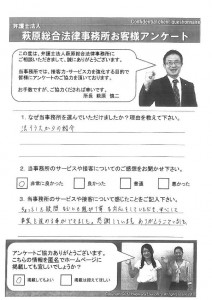 Confidential client questionnaire
弁護士法人
萩原総合法律事務所お客様アンケート
この度は、弁護士法人萩原総合法律事務所に
ご相談いただきまして、誠にありがとうございます。
当事務所では、接客力・サービス力を強化する目的で
皆様にアンケートのご協力を頂いております。
お手数ですが、ご協力くだされば幸いです。
所長 萩原 慎二
1. なぜ当事務所を選んでいただけましたか？理由を教えて下さい。
法テラスからの紹介
2. 当事務所のサービスや接客についてのご感想をお聞かせ下さい。
非常に良かった
良かった
普通
悪かった
3. 当事務所のサービスや接客について感じたことをご記入下さい。
感謝しています。ありがとうございました
アンケートご協力ありがとうございます。
こちらの情報を匿名でホームページに
掲載しても宜しいでしょうか？
掲載してもよい
掲載はちょっと…